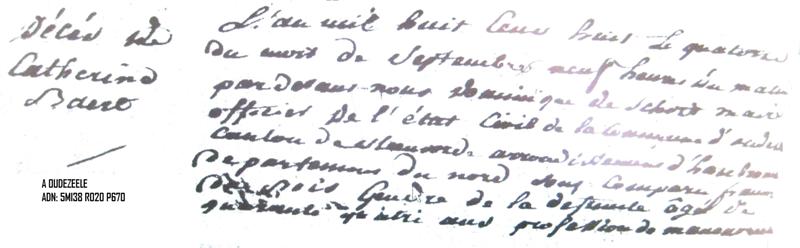 Décès de
Catherine
Baert
L'an mil huit cent huit le quatorze
du mois de Septembre neuf heures du matin
par devant nous Dominique de Schodt maire
officier de l'état Civil de la Commune d'oude
Canton de Steenvorde arrondissement d'hazebrou
Departement du nord sont comparu fran
De Bois Gendre de la defunte âgé de
quarante quatre ans profession de manouvrier
A OUDEZEELE
ADN: 5MI38 R020 P670